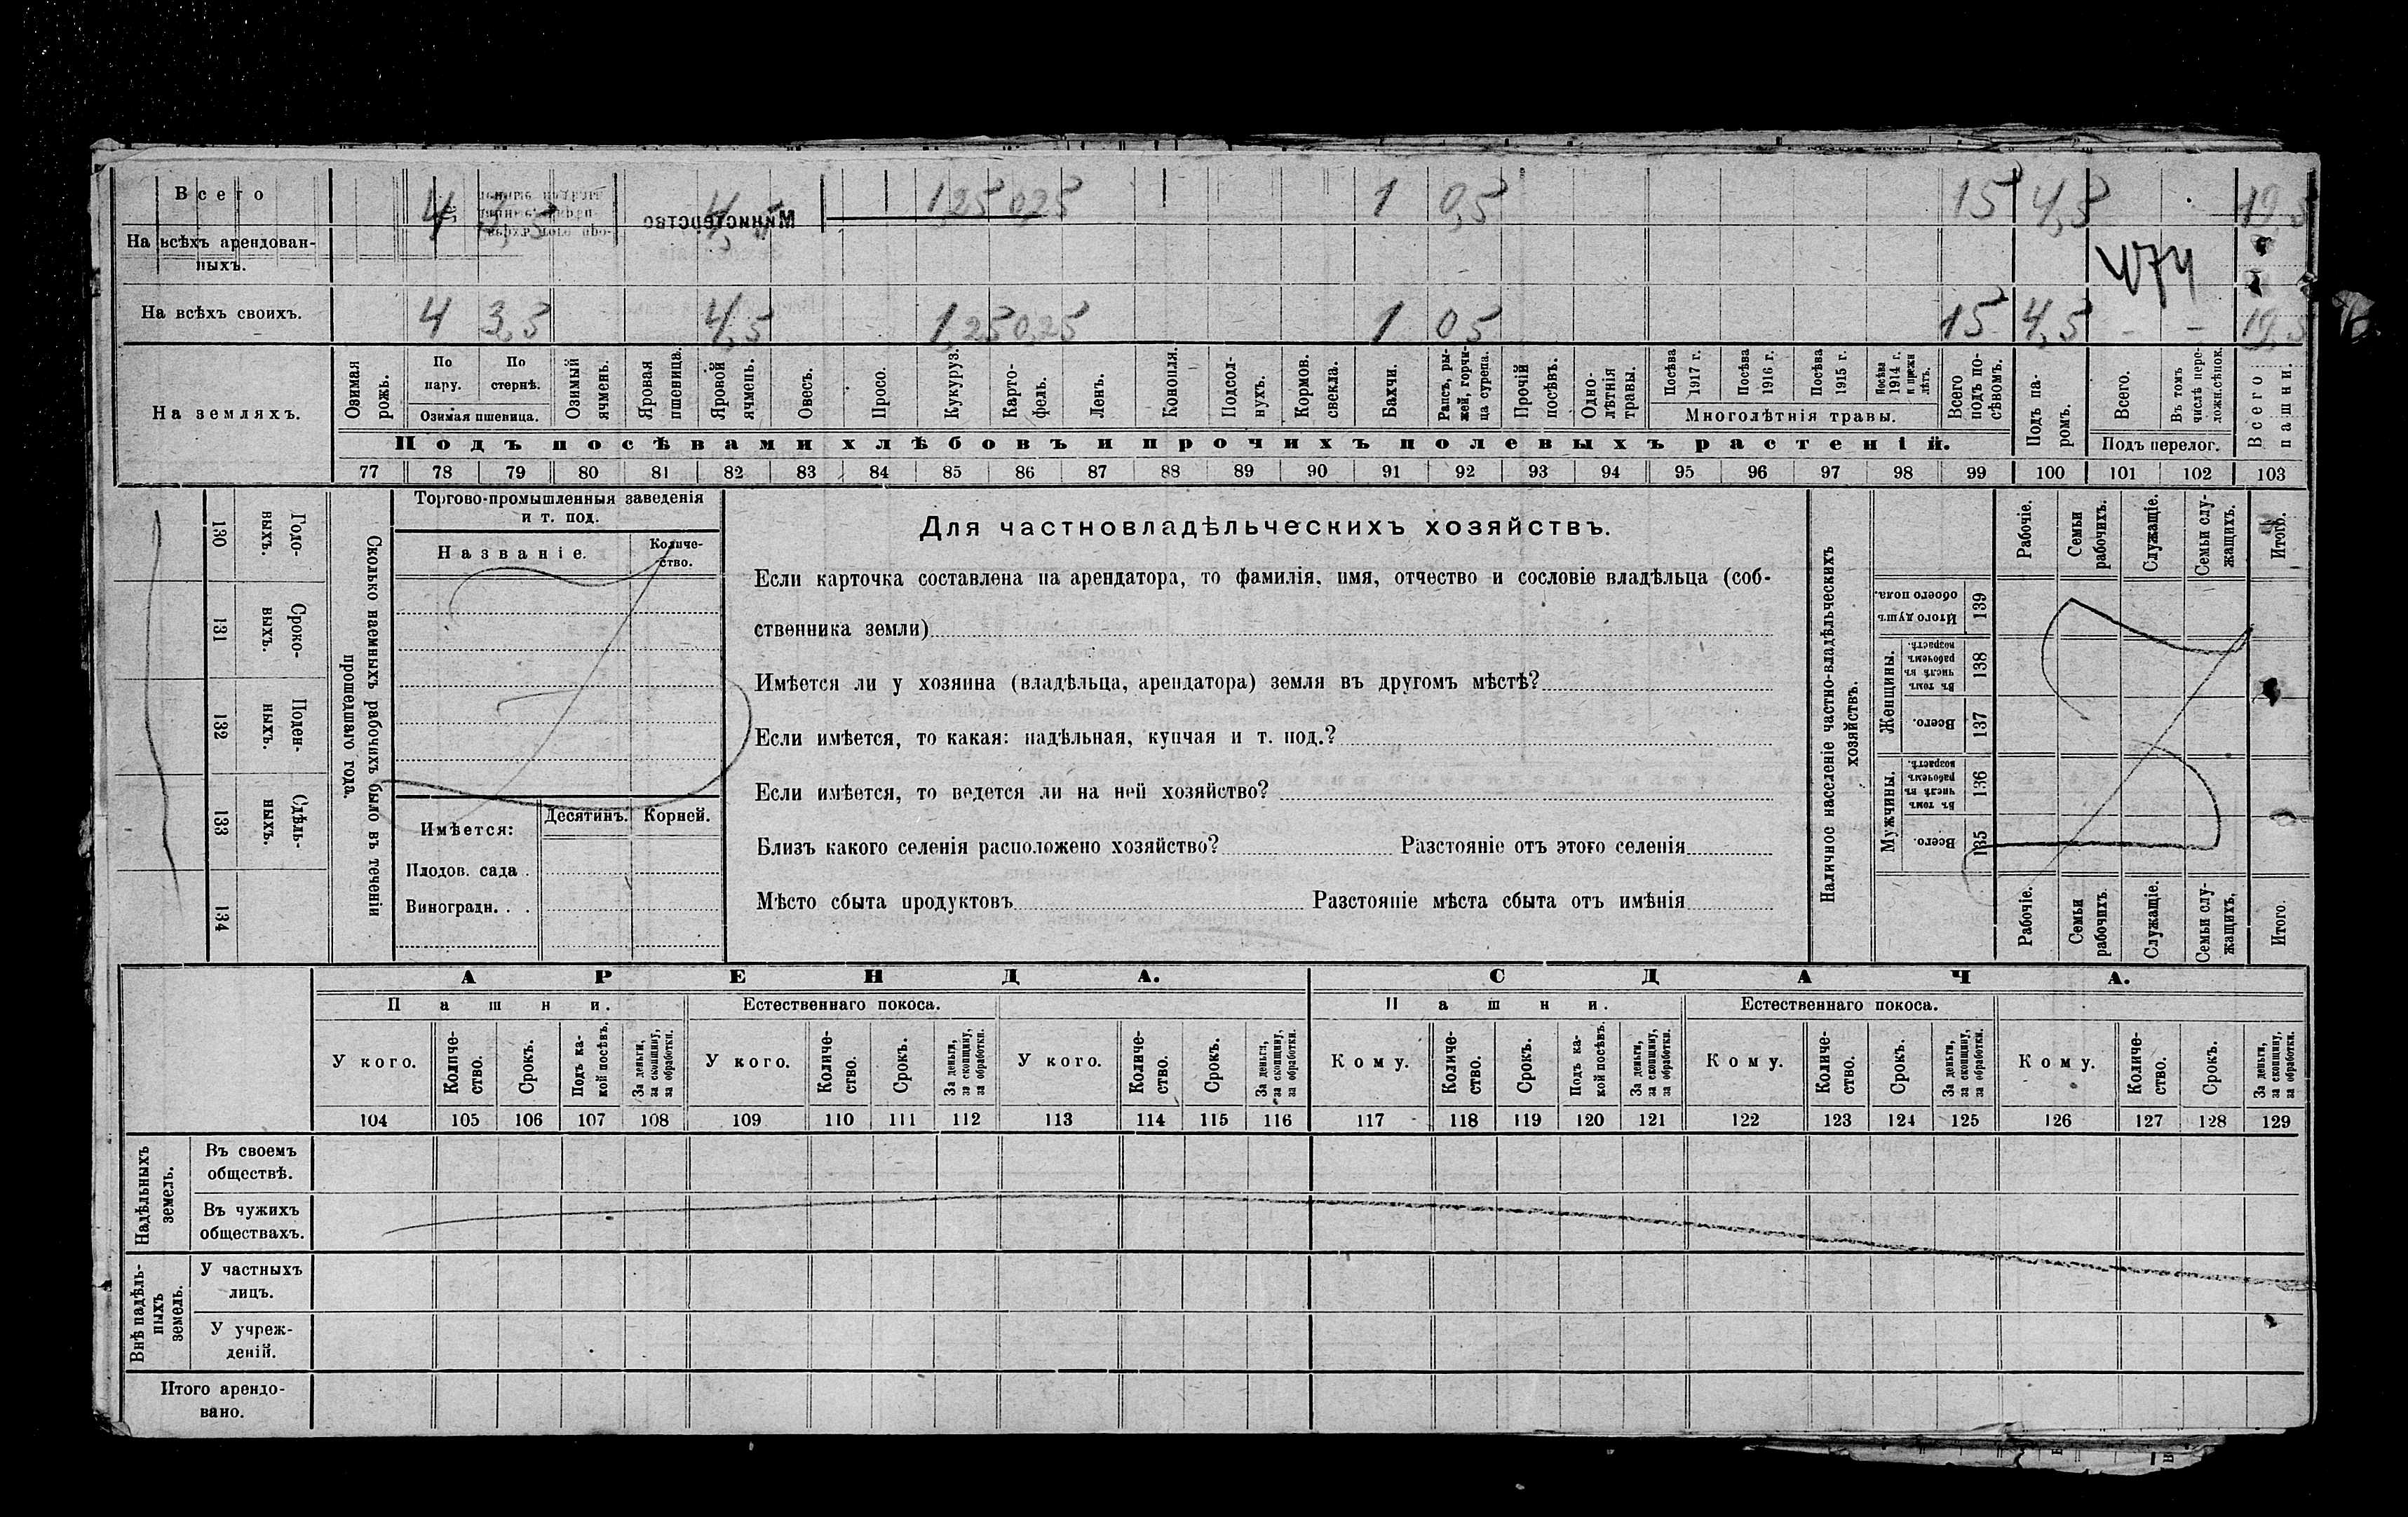 Всего 4 3,5 4,5 1,25 0,25 1 0,5 15 4,5 19,5
Министерство
На всѣхъ арендован-
ныхъ.
474
На всѣхъ своихъ. 4 3,5 4,5 1,25 0,25 1 05 15 4,5 - - 19,5
На земляхъ.
Озимая рожь.
По пару.
По стернѣ.
Озимая пшеница.
Озимый ячмень.
Яровая пшеница.
Яровой ячмень.
Овесъ.
Просо.
Кукуруз.
Карто-
фель.
Ленъ.
Конопля.
Подсол-
нухъ.
Кормов.
свекла.
Бахчи.
Рапсъ, ры-
жей, горчи-
ца сурепа.
Прочій
посѣвъ.
Одно-
лѣтнія
травы.
Посѣва
1917 г.
Посѣва
1916 г.
Посѣва
1915 г.
Посѣва
1914 г.
и прежн
лѣтъ.
Многолѣтнія травы.
Всего
подъ по-
сѣвомъ.
Подъ па-
ромъ.
Всего.
Въ томъ
числѣ пере-
ложн.сѣнок.
Подъ перелог.
Всего
пашни.
Подъ посѣвами хлѣбовъ и прочихъ полевыхъ растеній.
77 78 79 80 81 82 83 84 85 86 87 88 89 90 91 92 93 94 95 96 97 98 99 100 101 102 103
130 Годо-
выхъ.
131 Сроко-
выхъ.
132 Поден-
ныхъ.
133 Сдѣль-
ныхъ.
134
Сколько наемныхъ рабочихъ было въ теченіи
прошедшаго года.
Торгово-промышленныя заведенія
и т. под.
Названіе.
Количе-
ство.
Имѣется:
Десятинъ.
Корней.
Плодов. сада .
Виноградн. . .
Для частновладѣльческихъ хозяйствъ.
Если карточка составлена на арендатора, то фамилія, имя, отчество и сословіе владѣльца (соб-
ственника земли)
Имѣется ли у хозяина (владѣльца, арендатора) земля въ другомъ мѣстѣ?
Если имѣется, то какая: надѣльная, купчая и т. под.?
Если имѣется, то ведется ли на ней хозяйство?
Близъ какого селенія расположено хозяйство? Разстояніе отъ этого селенія
Мѣсто сбыта продуктовъ Разстояніе мѣста сбыта отъ имѣнія
Наличное населеніе частно-владѣльческихъ
хозяйствъ.
Рабочіе.
Семьи
рабочихъ.
Служащіе.
Семьи слу-
жащихъ.
Итого.
Итого душъ
обоего пола.
139
Женщины.
Въ томъ
числѣ въ
рабочемъ
возрастѣ.
138
Всего.
137
Мужчины.
Въ томъ
числѣ въ
рабочемъ
возрастѣ.
136
Всего.
135
Рабочіе.
Семьи
рабочихъ.
Служащіе.
Семьи слу-
жащихъ.
Итого.
АРЕНДА. СДАЧА.
Пашни. Естественнаго покоса. Пашни. Естественнаго покоса.
У кого.
Количе-
ство.
Срокъ.
Подъ ка-
кой посѣвъ.
За деньги,
за скопщину,
за обработки.
У кого.
Количе-
ство.
Срокъ.
За деньги,
за скопщину,
за обработки.
У кого.
Количе-
ство.
Срокъ.
За деньги,
за скопщину,
за обработки.
Кому.
Количе-
ство.
Срокъ.
Подъ ка-
кой посѣвъ.
За деньги,
за скопщину,
за обработки.
Кому.
Количе-
ство.
Срокъ.
За деньги,
за скопщину,
за обработки.
Кому.
Количе-
ство.
Срокъ.
За деньги,
за скопщину,
за обработки.
104 105 106 107 108 109 110 111 112 113 114 115 116 117 118 119 120 121 122 123 124 125 126 127 128 129
Надѣльныхъ
земель.
Въ своемъ
обществѣ.
Въ чужихъ
обществахъ.
Внѣ надѣль-
ныхъ
земель.
У частныхъ
лицъ.
У учреж-
деній.
Итого арендо-
вано.